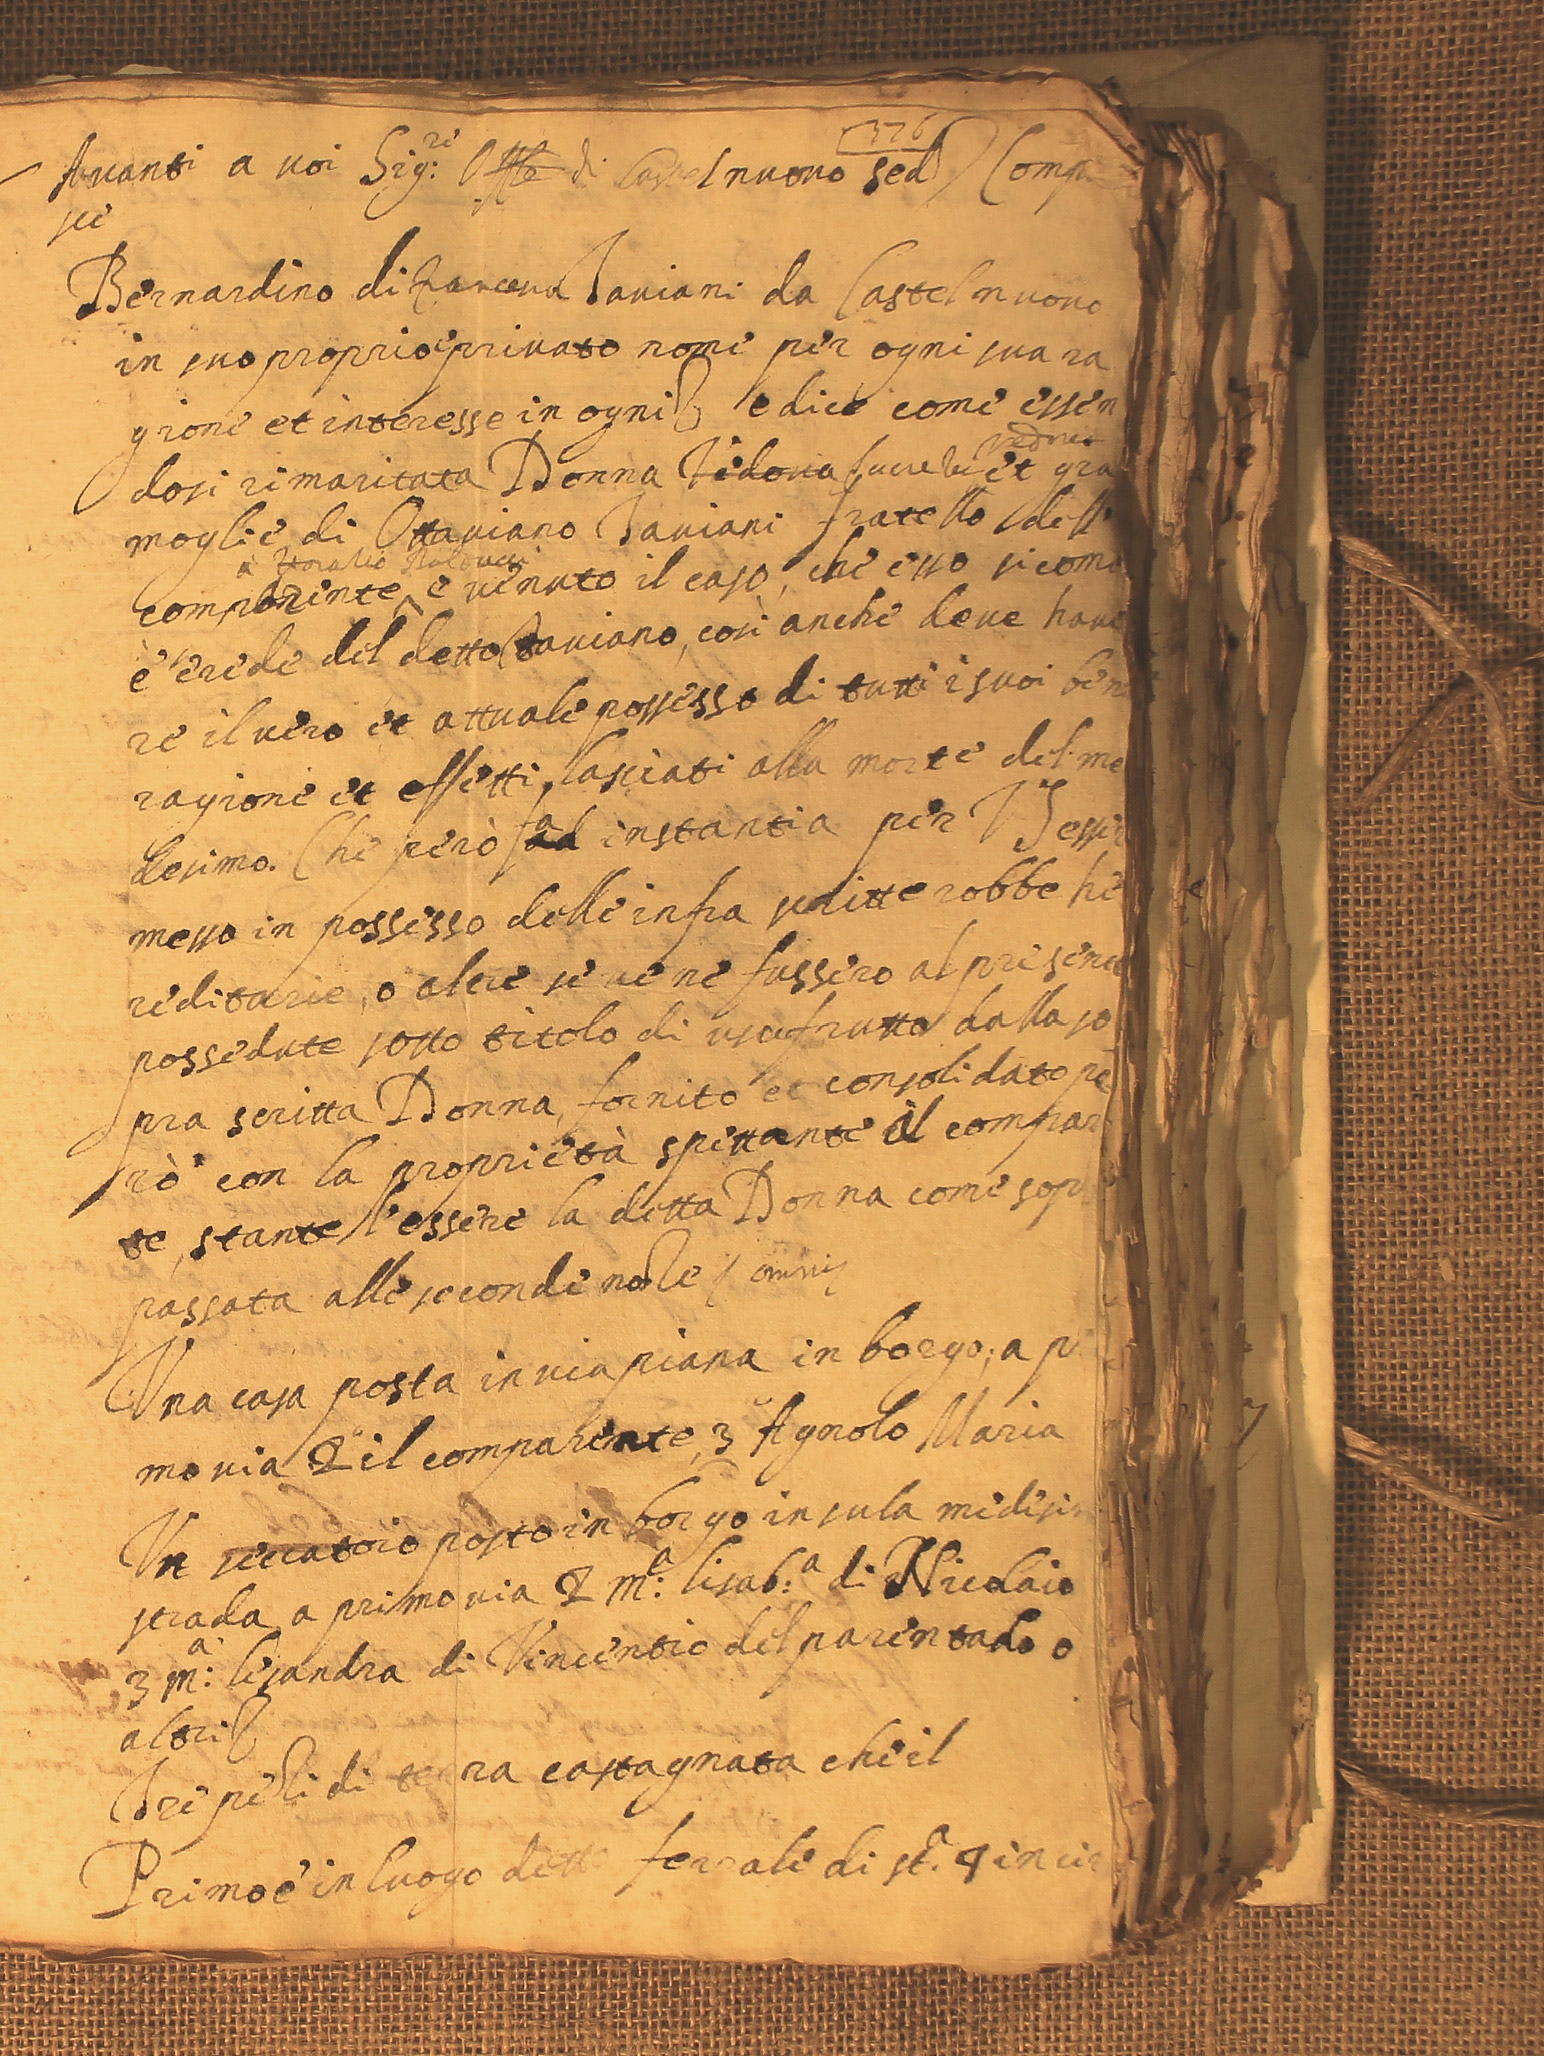 376
Avanti a voi Sig:re Offle di Castelnuovo sed Comp
sce
Bernardino di Taviani da Castelnuovo
in suo proprio e privato nome per ogni sua ra
gione et interesse in ogni e dice come essen
vedova
dosi rimaritata Donna et gra
moglie di Ottaviano Taviani fratello dell
a Horatio
comparente è venuto il caso, che esso si come
è erede del detto Ottaviano, così anche deve have
re il vero et attuale possesso di tutti i suoi beni
ragione et effetti lasciati alla morte del me
desimo. Che però fa instantia per VS esser
messo in possesso delle infra scritte robbe he
reditarie, o altre se ve ne fussero al presente
possedute sotto titolo di usufrutto dalla so
pra scritta Donna, fornito et consolidato pe
rò con la proprietà spettante al compar
te, stante l'essere la detta Donna come sopr
passata alle seconde nozze omnis
Una casa posta in via piana in borgo; a pi
mo via 2 il comparente, 3 Agnolo Maria
Un seccatoio posto in borgo in sula medesim
strada a primo via 2 m:a lisab:a di Nicolaio
3 m:a lisandra di Vincentio del parentado o
altri
Tre pezzi di terra castagnata che il
Primo è in luogo detto ferrale di st. 4 in cir